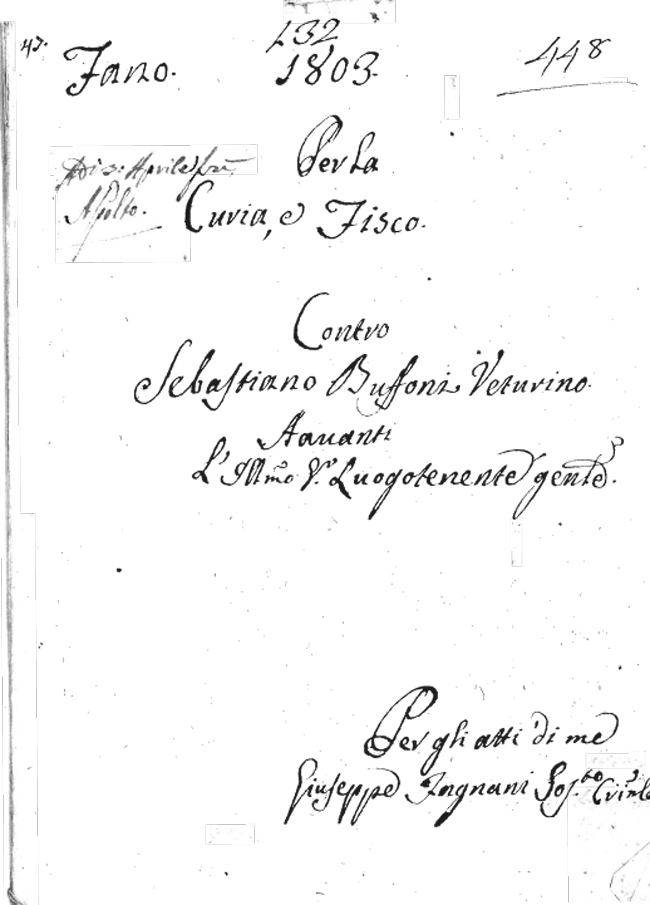 47.
132
Fano. 1803. 448
Per la
Adi 3: Aprile
Assolto.
Curia, e Fisco.
Contro
Sebastiano Buffoni Veturino.
Avanti
L'Illmo Sr. Luogotenente Genle.
Per gli atti di me
Giuseppe Ingnani Sos.to Crimle